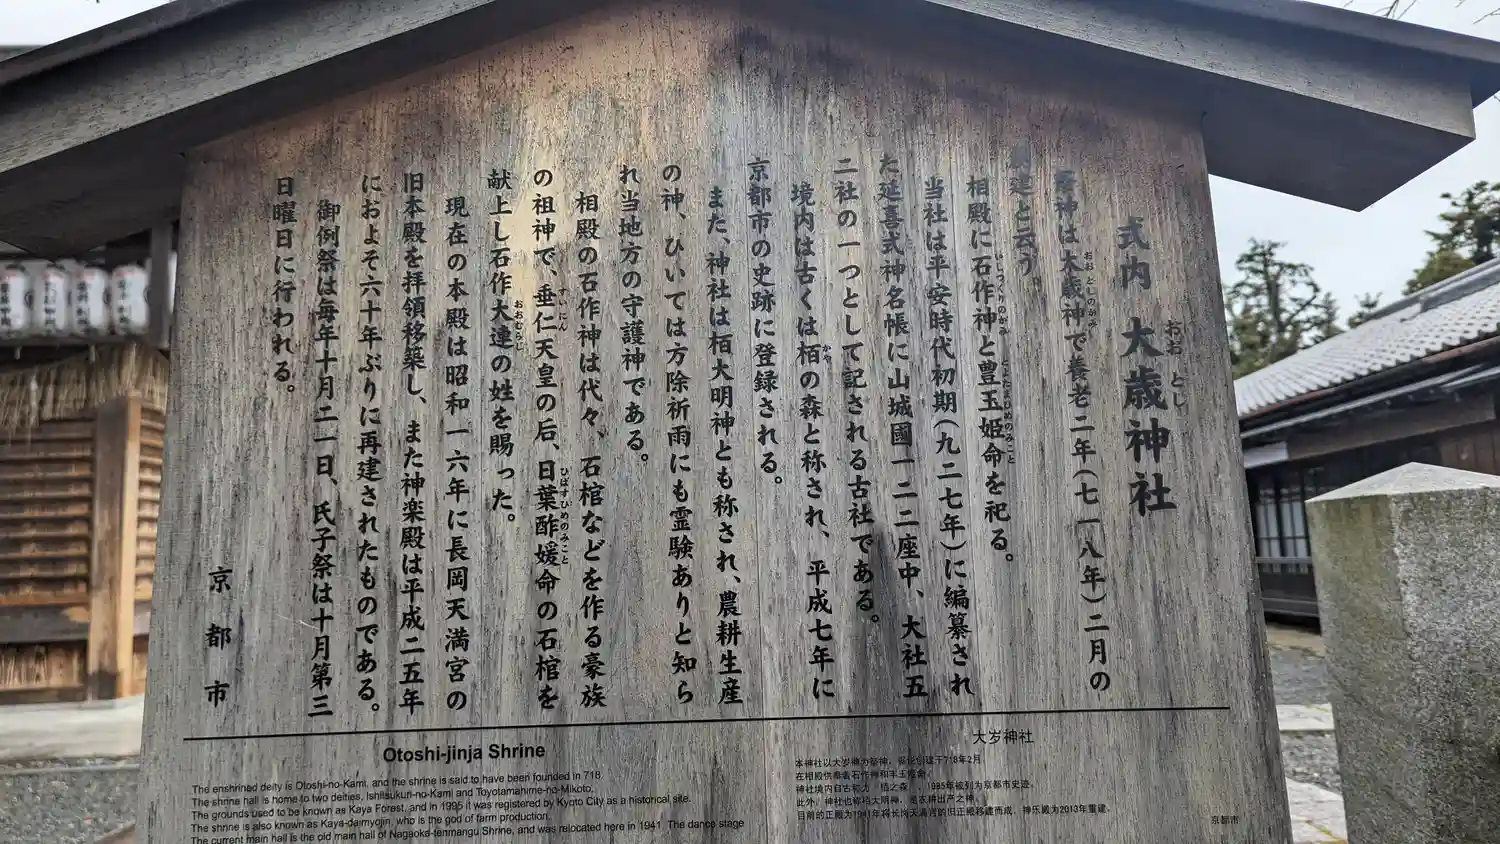 式内 大歳神社
おお とし
祭神は大歳神で養老二年(七一八年)二月の
おおとしのかみ
創建と云う。
相殿に石作神と豊玉姫命を祀る。
いしつくりのかみ とよたまひめのみこと
当社は平安時代初期(九二七年)に編纂され
た延喜式神名帳に山城國一二二座中、大社五
二社の一つとして記される古社である。
境内は古くは栢の森と称され、平成七年に
かや
京都市の史跡に登録される。
また、神社は栢大明神とも称され、農耕生産
の神、ひいては方除祈雨にも霊験ありと知ら
れ当地方の守護神である。
相殿の石作神は代々、石棺などを作る豪族
の祖神で、垂仁天皇の后、日葉酢媛命の石棺を
すいにん ひばすひめのみこと
献上し石作大連の姓を賜った。
おおむらじ
現在の本殿は昭和一六年に長岡天満宮の
旧本殿を拝領移築し、また神楽殿は平成二五年
におよそ六十年ぶりに再建されたものである。
御例祭は毎年十月二一日、氏子祭は十月第三
日曜日に行われる。
京都市
Otoshi-jinja Shrine
The enshrined deity is Otoshi-no-Kami, and the shrine is said to have been founded in 718.
The shrine hall is home to two deities, Ishitsukuri-no-Kami and Toyotamahime-no-Mikoto.
The grounds used to be known as Kaya Forest, and in 1995 it was registered by Kyoto City as a historical site.
The shrine is also known as Kaya-daimyojin, who is the god of farm production.
The current main hall is the old main hall of Nagaoka-tenmangu Shrine, and was relocated here in 1941. The dance stage
大岁神社
本神社以大岁神为祭神，据说创建于718年2月。
在相殿供奉者石作神和丰玉姬命。
神社境内自古称为“栢之森”，1995年被列为京都市史迹。
此外，神社也称栢大明神，是农耕出产之神。
目前的正殿为1941年将长冈天满宫的旧正殿移建而成，神乐殿为2013年重建。
京都市